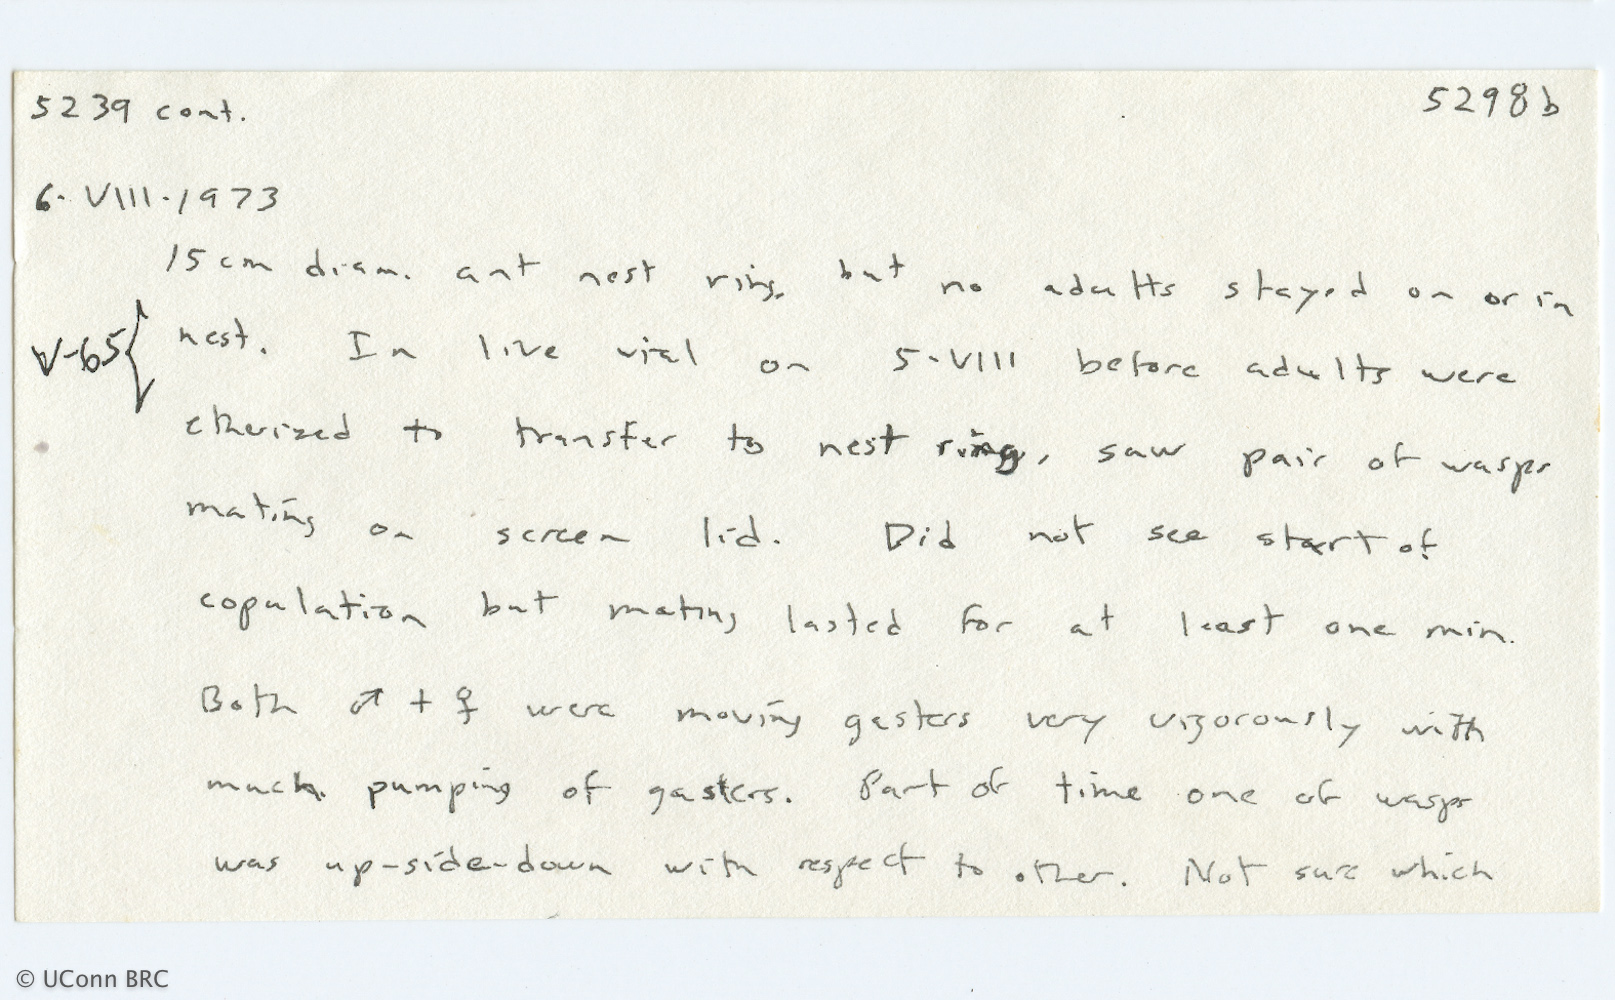 5239 cont.
5298b
6·VIII·1973
15cm diam. ant nest ring, but no adults stayed on or in
V-65{ nest. In live vial on 5·VIII before adults were
etherized to transfer to nest ring, saw pair of wasps
mating on screen lid. Did not see start of
copulation but mating lasted for at least one min.
Both ♂ + ♀ were moving gasters very vigorously with
much pumping of gasters. Part of time one of wasps
was up-side-down with respect to other. Not sure which
© UConn BRC